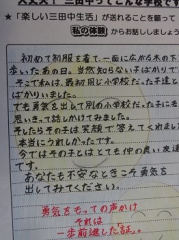 大丈夫！ 三田中ってこんな学校です
★「楽しい三田中生活」が送れることを願って
私の体験 からお話ししましょう
初めて制服を着て、一番に広がる木の下
歩いたあの日。当然知らない子ばかりで
そこで最初は同じ小学校だった子達と
ばかりいました。
でも勇気を出して別の小学校だった子に
思いきって話しかけてみました。
そしたらその子は笑顔で答えてくれまし
本当にうれしかったです。
今ではその子とはとても仲の良い友達
です。
あなたも不安なときこそ勇気を
出してみてください。
勇気をもっての声かけ
それは
一歩前進した証。